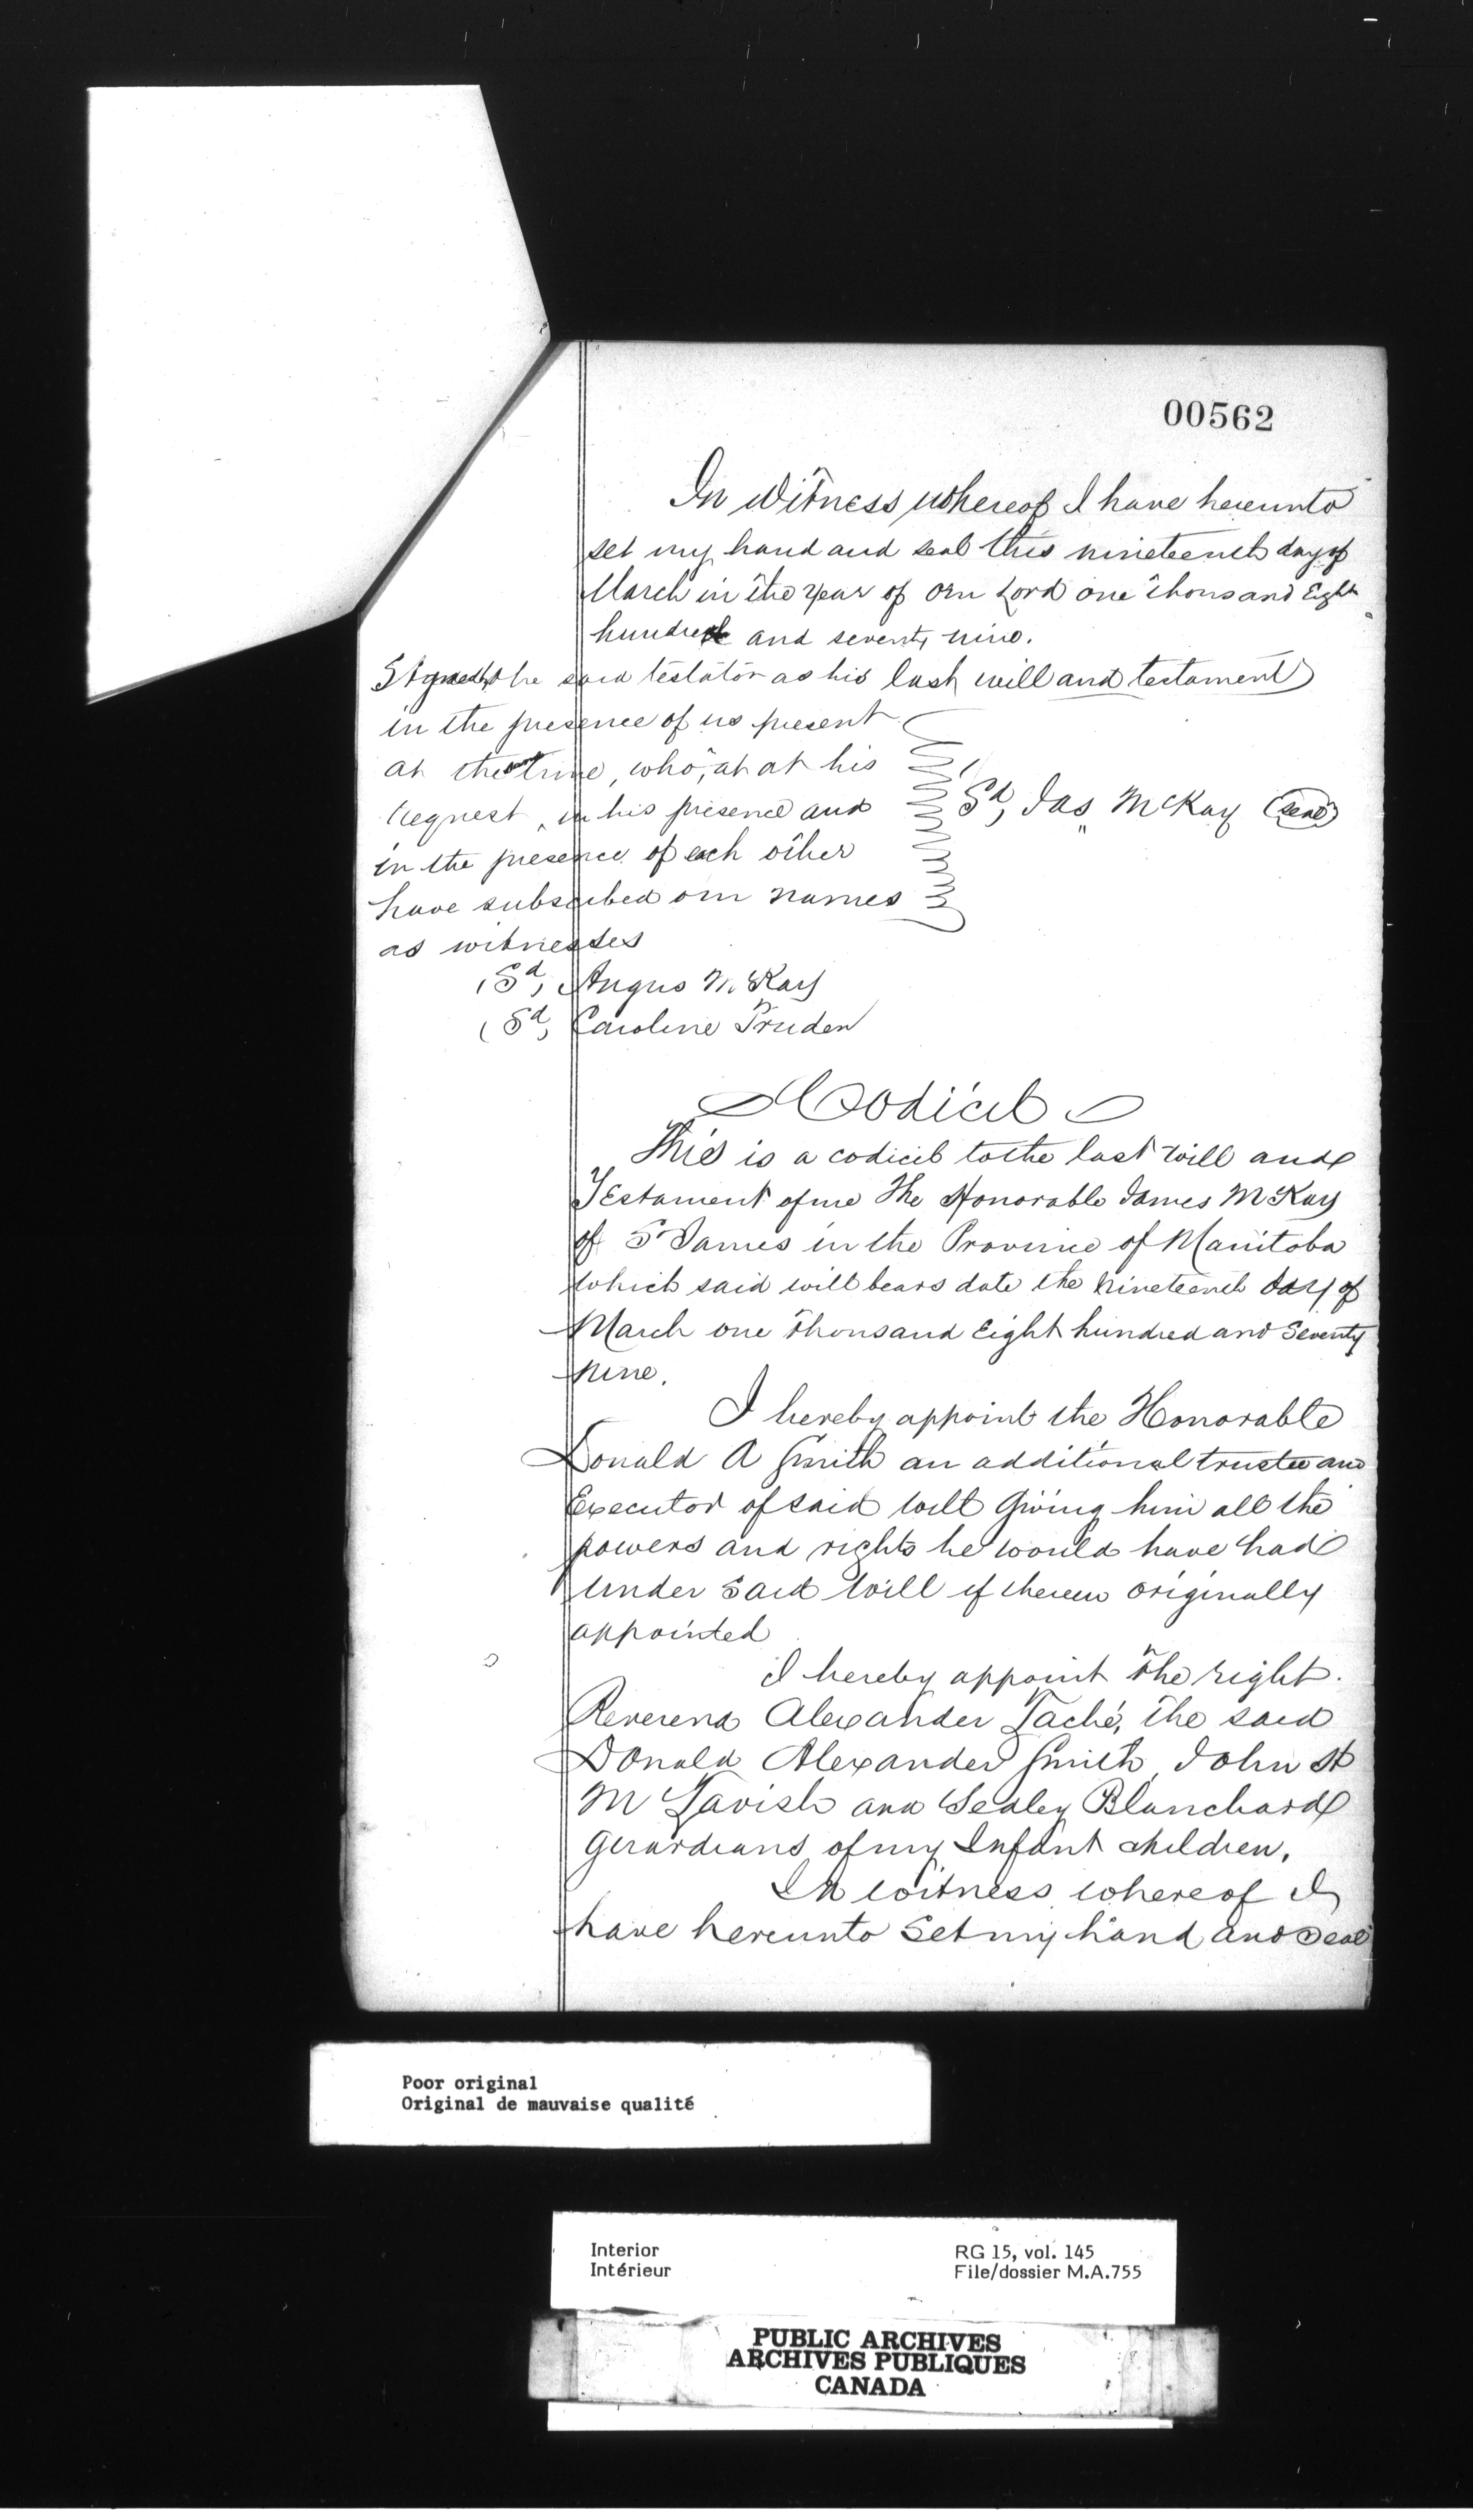 00562
In Witness whereof I have hereunto
set my hand and seal this nineteenth day of
March in the year of our Lord one thousand Eight
hundred and seventy nine.
Signed by the said testator as his last will and testament
in the presence of us present
at the same time, who, at at his
request, in his presence and
in the presence of each other
have subscribed our names
as witnesses
(Sd) Jas McKay (seal)
(Sd) Angus McKay
(Sd) Caroline Pruden
Codicil
This is a codicil to the last will and
Testament of me The Honorable James McKay
of St James in the Province of Manitoba
which said will bears date the nineteenth day of
March one thousand Eight hundred and Seventy
nine.
I hereby appoint the Honorable
Donald A Smith an additional trustee and
Executor of said will giving him all the
powers and rights he would have had
under said will if therein originally
appointed
I hereby appoint the right
Reverend Alexander Taché, the said
Donald Alexander Smith, John H
McTavish and Sedley Blanchard
guardians of my Infant children.
In witness whereof I
have hereunto set my hand and seal
Poor original
Original de mauvaise qualité
Interior
Intérieur
RG 15, vol. 145
File/dossier M.A.755
PUBLIC ARCHIVES
ARCHIVES PUBLIQUES
CANADA